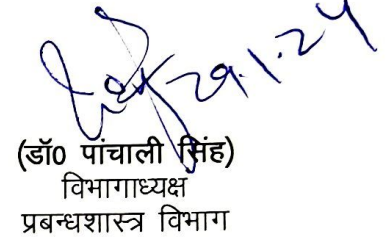 29.1.24
(डॉ0 पांचाली सिंह)
विभागाध्यक्ष
प्रबन्धशास्त्र विभाग